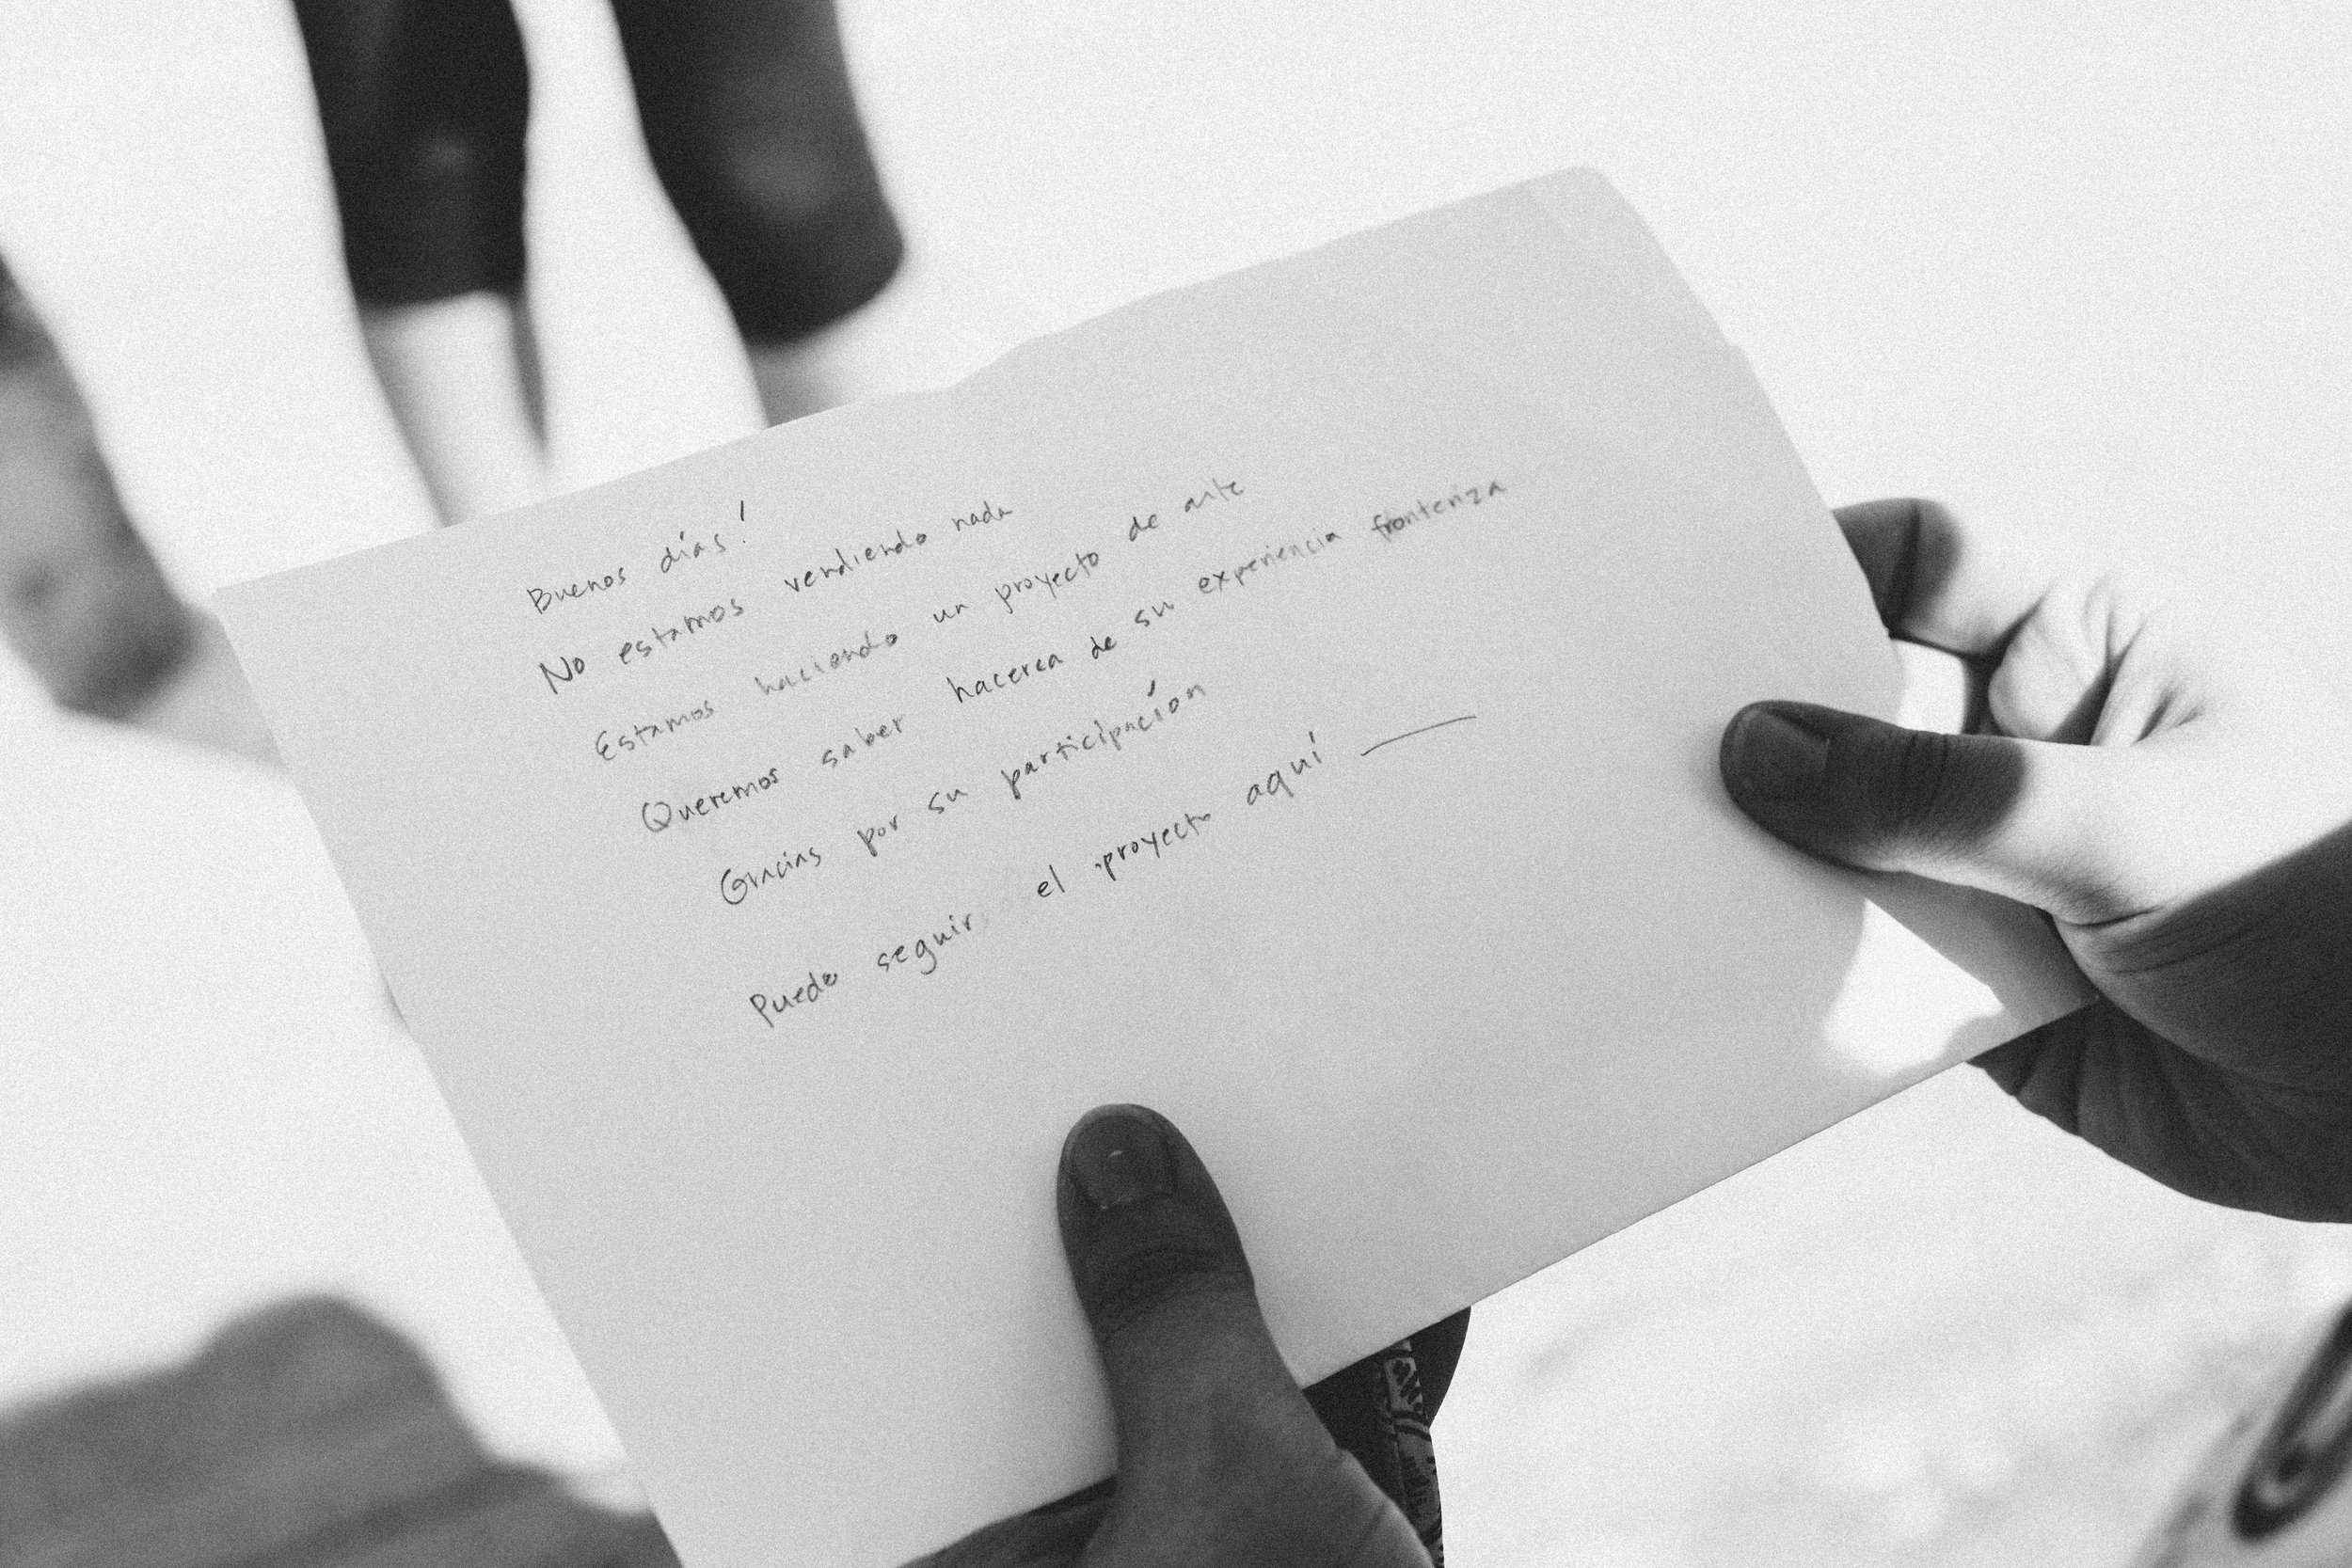 Buenos días!
No estamos vendiendo nada
Estamos haciendo un proyecto de arte
Queremos saber hacerca de su experiencia fronteriza
Gracias por su participación
Puede seguir el proyecto aquí —